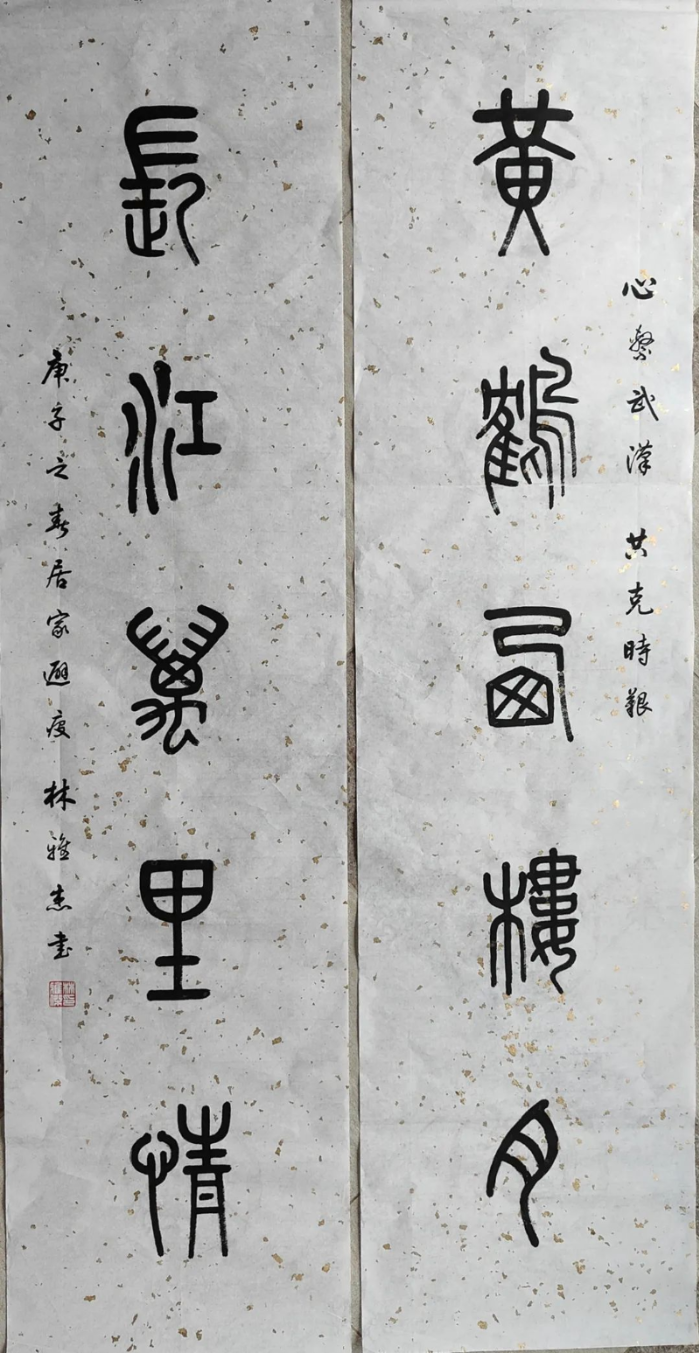 心繫武漢 共克時艱
黃鶴西樓月
長江萬里情
庚子之春居家避疫 林雅杰書